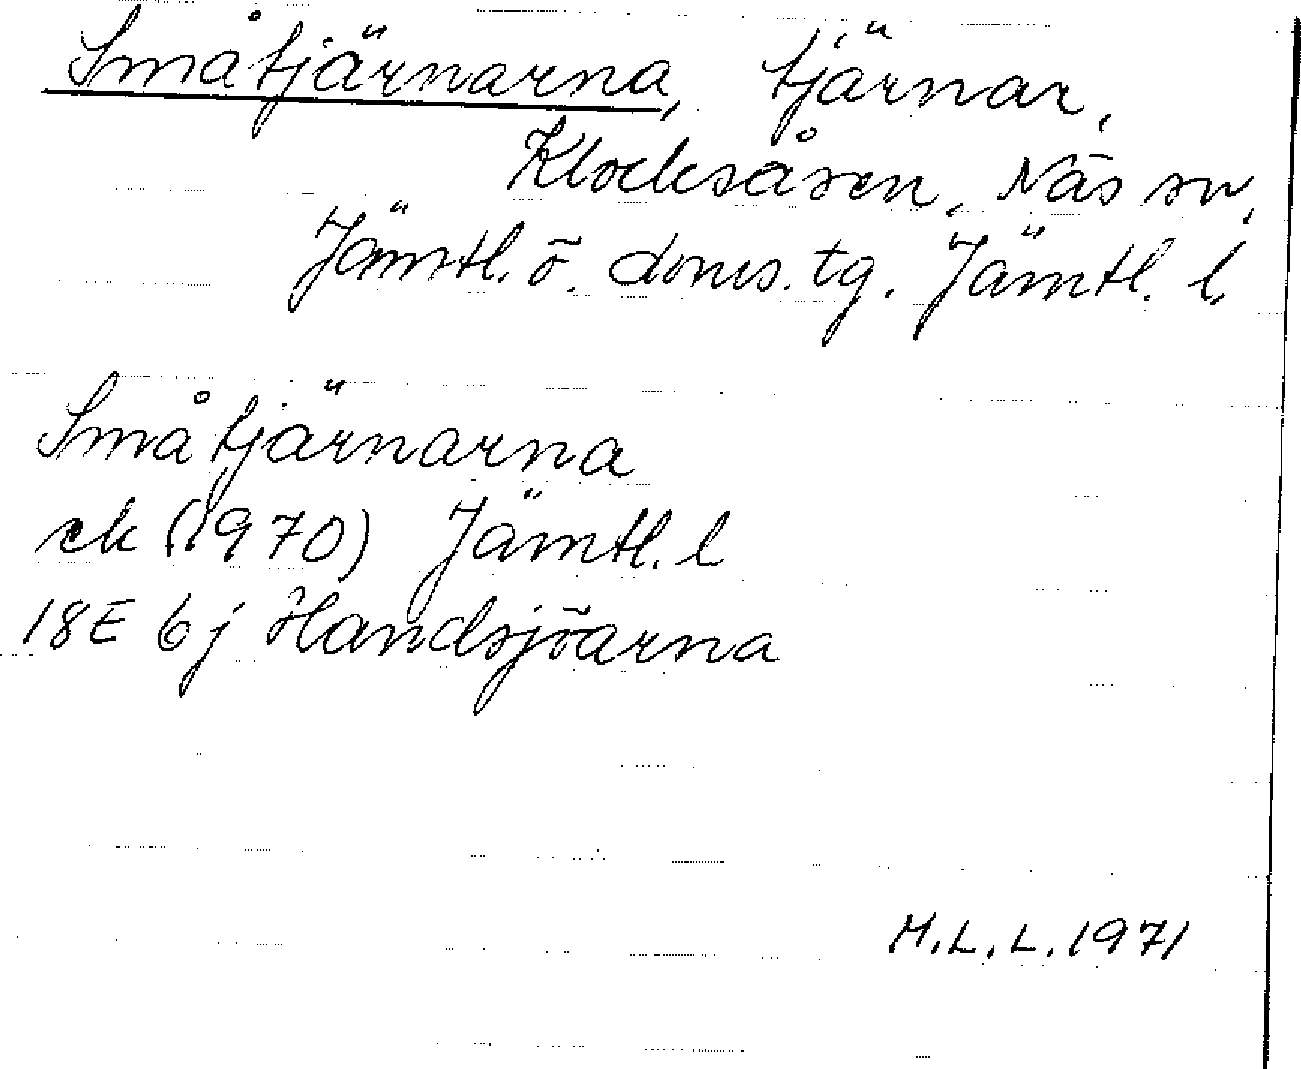 Småtjärnarna, tjärnar,
Klocksåsen, Näs sn,
Jämtl. ö. doms. tg. Jämtl. l.
Småtjärnarna
ek (1970) Jämtl. l
18E 6j Handsjöarna
M.L.L. 1971